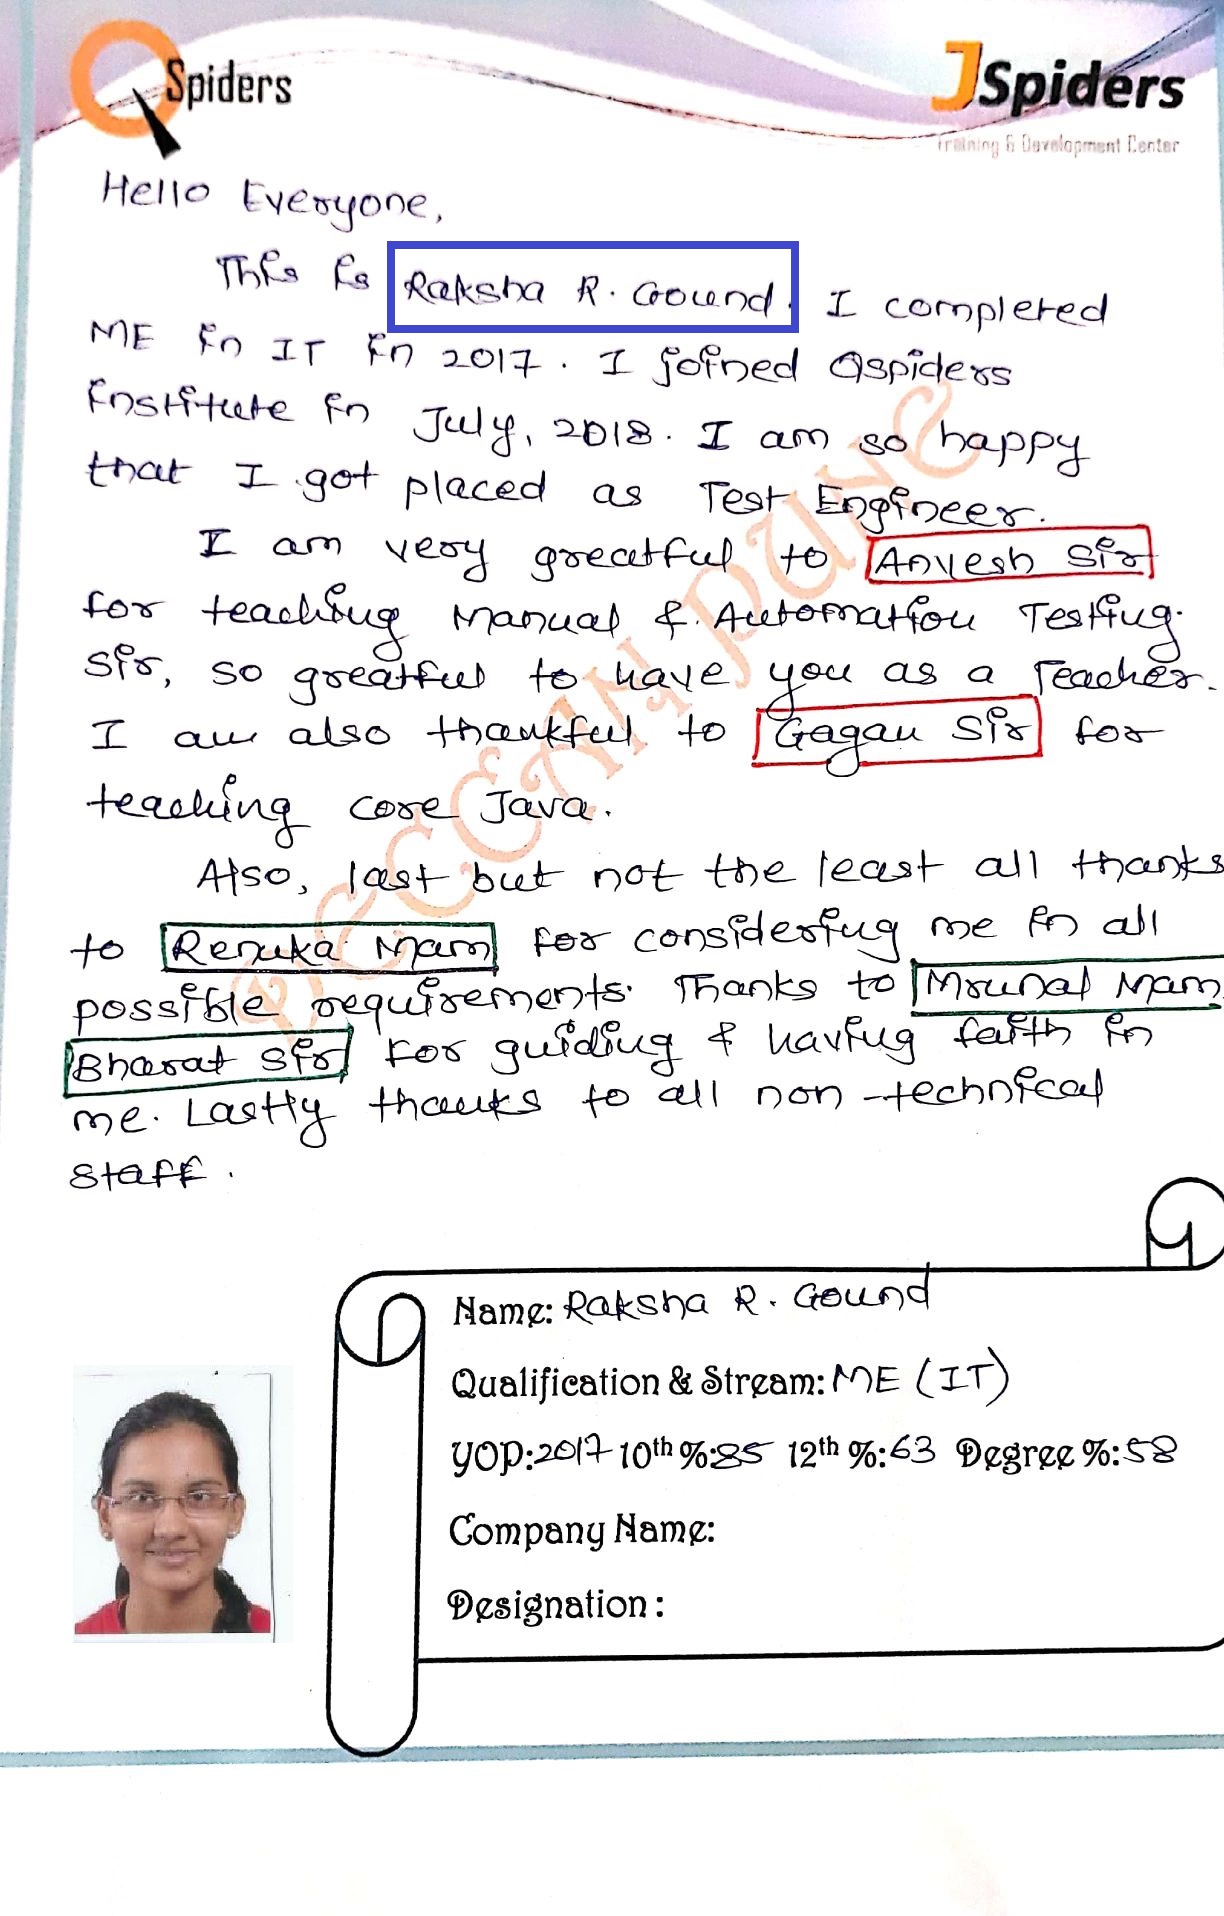 QSpiders
JSpiders
Training & Development Center
Hello Everyone,
This is Raksha R. Gound. I completed
ME in IT in 2017. I joined Qspiders
institute in July, 2018. I am so happy
that I got placed as Test Engineer.
I am very greatful to Anvesh Sir
for teaching Manual & Automation Testing.
Sir, so greatful to have you as a Teacher.
I am also thankful to Gagan Sir for
teaching core Java.
Also, last but not the least all thanks
to Renuka Mam for considering me in all
possible requirements. Thanks to Mrunal Mam
Bharat Sir for guiding & having faith in
me. Lastly thanks to all non-technical
staff.
DECCAN PUNE
Name: Raksha R. Gound
Qualification & Stream: ME (IT)
YOP:2017 10th %:85 12th %:63 Degree %:58
Company Name:
Designation :